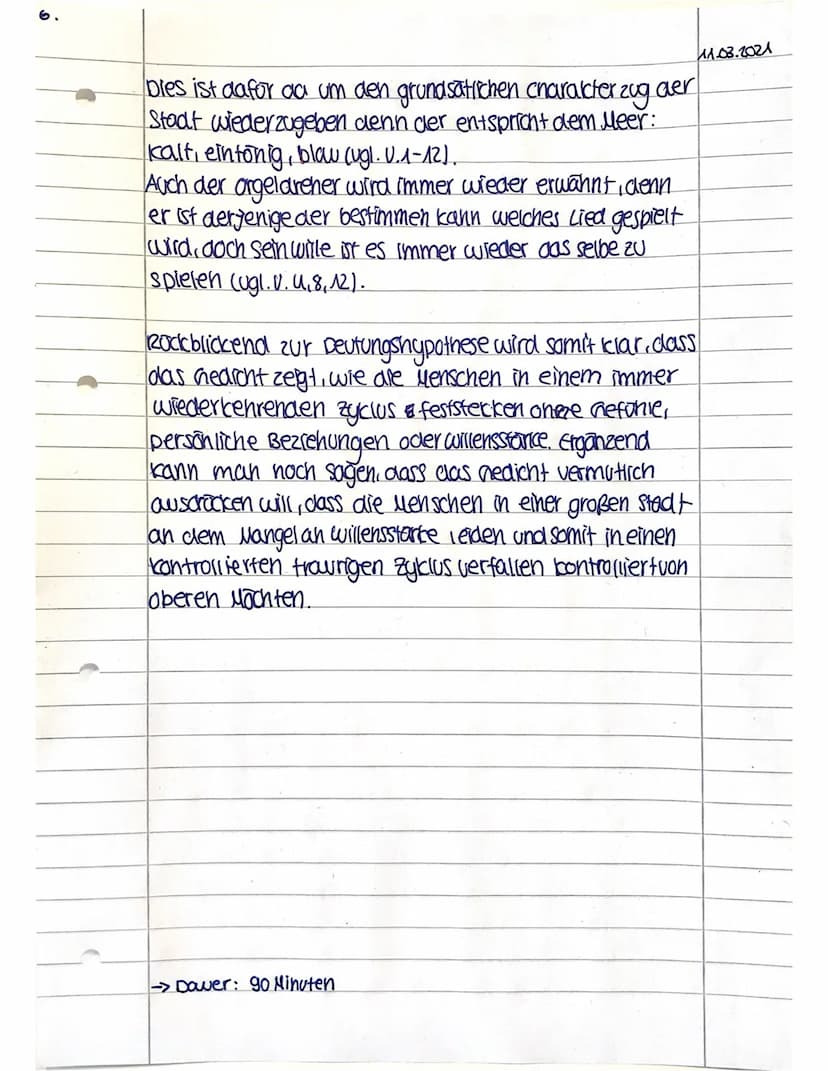 6.
11.03.2021
Dies ist dafür da um den grundsätlichen Charakterzug der
Stadt wiederzugeben denn der entspricht dem Meer:
kalt, eintönig, blau (vgl. V.1-12).
Auch der Orgeldreher wird immer wieder erwähnt, denn
er ist derjenige der bestimmen kann welches Lied gespielt
wird, doch sein wille ist es immer wieder das selbe zu
spielen (vgl. V. 4, 8, 12).
Rückblickend zur Deutungshypothese wird somit klar, dass
das Gedicht zeigt, wie die Menschen in einem immer
wiederkehrenden Zyclus feststecken ohne Gefühle,
persönliche Beziehungen oder willensstärke. Ergänzend
kann man noch sagen, dass das Gedicht vermutlich
ausdrücken will, dass die Menschen in einer großen Stadt
an dem Mangel an willensstärke leiden und somit in einen
kontrollierten traurigen Zyklus verfallen kontrolliert von
oberen Mächten.
→ Dauer: 90 Minuten